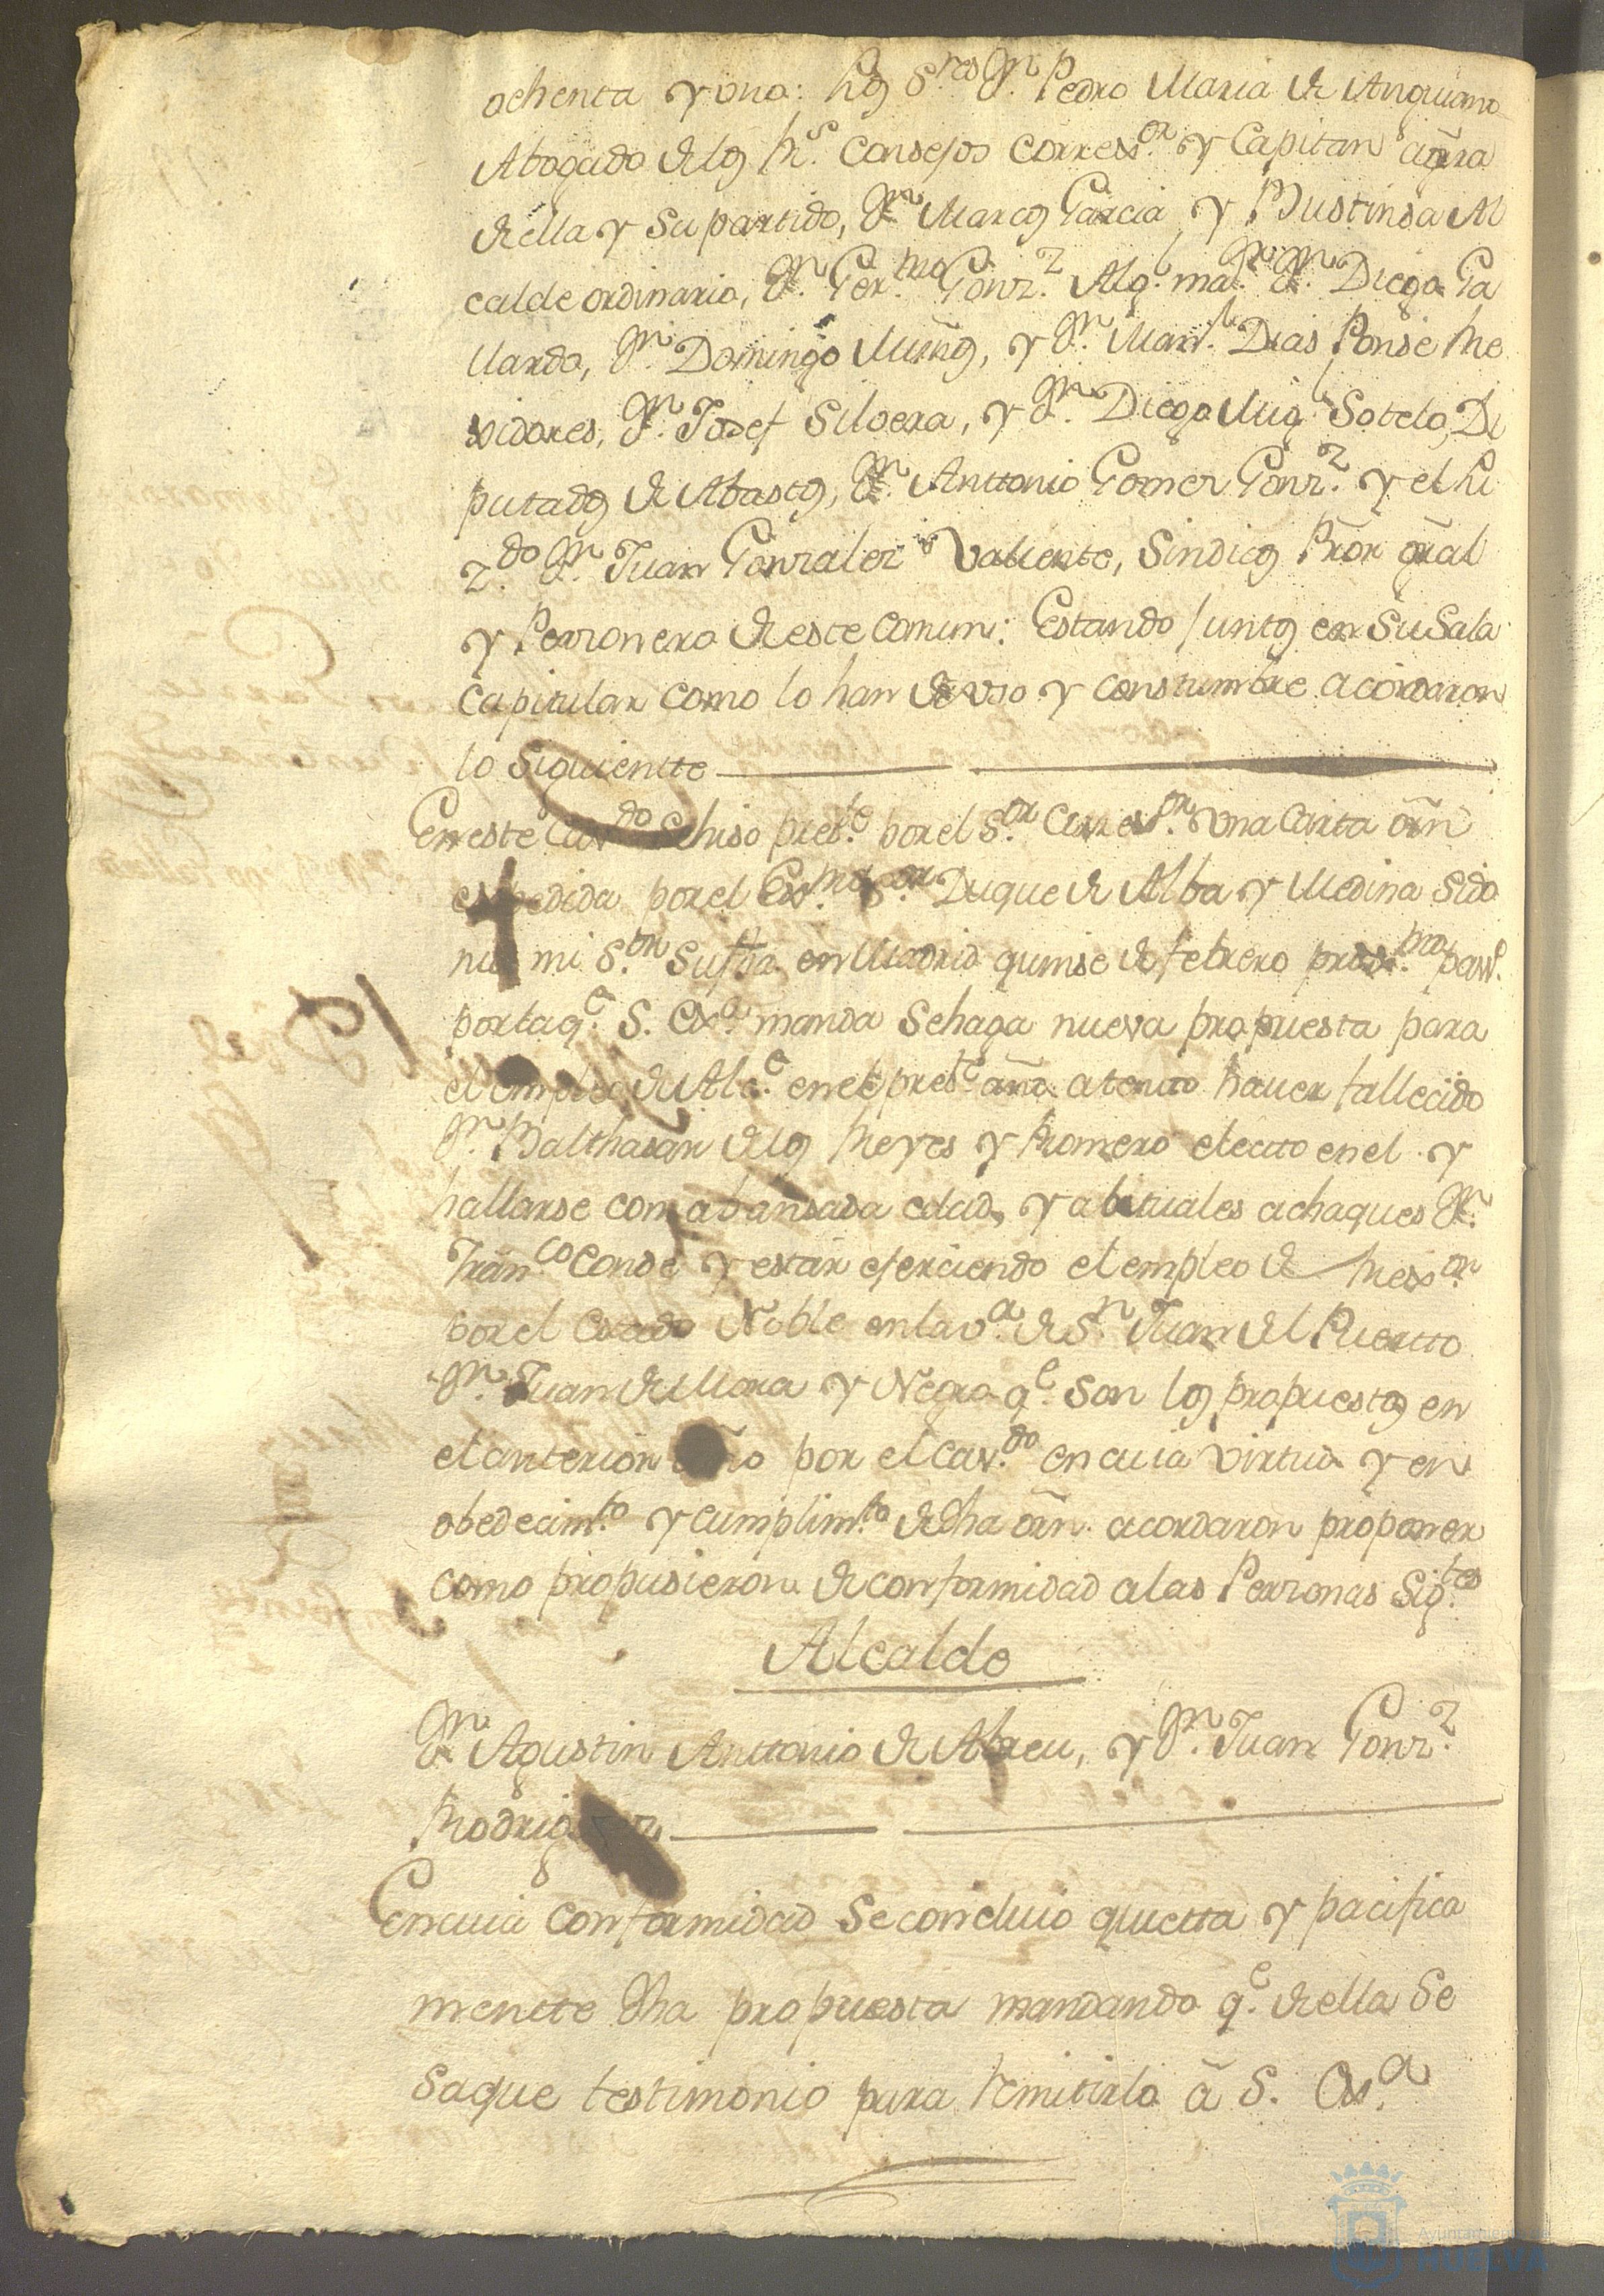 ochenta y uno: los S.res D.n Pedro Maria de Anquiano
Abogado de los Rs. Consejos Corress.or y Capitan aõ grra
de ella y su partido, D.n Marcos Garcia y Bustinsa Al
calde ordinario, D.n Ger.mo Gonz.z Alg.l ma.or D.n Diego Ga
llardo, D.n Domingo Muños, y D.n Man.l Dias Ponse Re
xidores, D.n Josef Silvera, y D.n Diego Mig.l Sotelo, Di
putados de Abastos, D.n Anttonio Gomez Gonz.z y el Li
z.do D.n Juan Gonzalez Valiente, Sindicos Prõr grãl
y Perzonero de este comun: Estando juntos en su Sala
Capitular como lo han de uso y constumbre acordaron
lo siguientte
En este Cav.do se hiso pres.te por el S.or Corres.or una Carta orñ
expedida por el Ex.mo S.or Duque de Alba y Medina Sido
nia mi S.or su fha en Madrid quinse de febrero prox.mo pass.
por la q.e S. Ex.a manda se haga nueva propuesta para
el empleo de Alc.e en el pres.te año atento haver fallecido
D.n Balthasar de los Reyes y Romero electo en el y
hallarse con abansada edad, y abituales achaques D.n
Fran.co Conde y estar ejerciendo el empleo de Rexi.or
por el Estado Noble en la v.a de S.n Juan del Puertto
D.n Juan de Mora y Negro q.e son los propuestos en
el anterior año por el cav.do en cuia virtud y en
obedecim.to y cumplim.to de dha orñ. acordaron proponer
como propusieron de conformidad a las Perzonas Sig.tes
Alcalde
D.n Agustin Anttonio de Abreu, y D.n Juan Gonz.z
Rodriguez
En cuia conformidad se concluio quietta y pacifica
mentte dha propuesta mandando q.e de ella se
saque testimonio para remitirlo â S. Ex.a
Ayuntamiento de
HUELVA